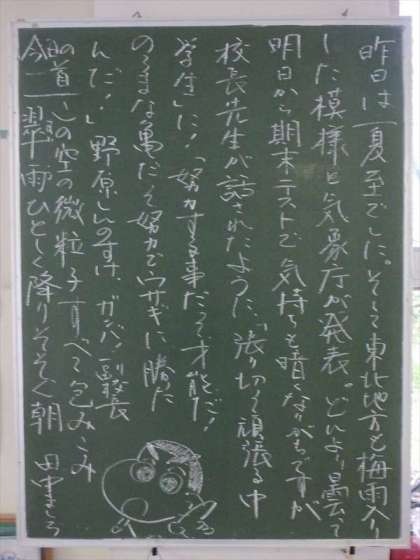 昨日は「夏至」でした。そして東北地方も梅雨入り
した模様と気象庁が発表。どんより曇って
明日から期末テストで気持ちも暗くなりがちですが
校長先生が話されたように、「張り切って頑張る中
学生」に!「努力する事だって才能だ!
のろまな亀だって努力でウサギに勝った
んだ!」野原しんのすけ、ガンバレ副校長
の首一この空の微粒子すべて包みこみ
翠雨ひとしく降りそそぐ朝 田中ましろ